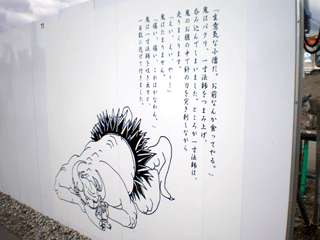 「生意気な小僧だ。お前なんか食ってやる。」
鬼はパクリ、一寸法師をつまみ上げ、
呑み込んでしまいました。ところが一寸法師は、
鬼のお腹の中で針の刀を突き刺しながら
走りまくります。
「えい、えい、やー！」
鬼はたまりません。
「痛い、痛い、これはかなわん。」
鬼は一寸法師を吐き出すと、
一目散に逃げて行きました。